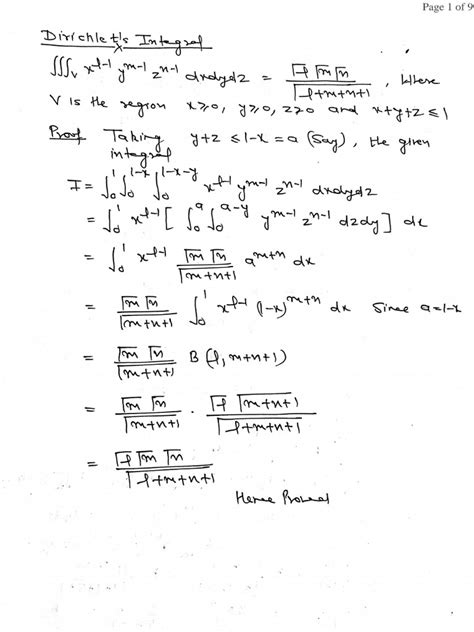 Page 1 of 9
Dirichlet's Integral
∭_V x^{l-1} y^{m-1} z^{n-1} dxdydz = Γl Γm Γn / Γl+m+n+1 , Where
V is the region x≥0, y≥0, z≥0 and x+y+z ≤ 1
Proof Taking y+z ≤ 1-x = a (Say), the given
integral
I = ∫_0^1 ∫_0^{1-x} ∫_0^{1-x-y} x^{l-1} y^{m-1} z^{n-1} dxdydz
= ∫_0^1 x^{l-1} [ ∫_0^a ∫_0^{a-y} y^{m-1} z^{n-1} dzdy ] dx
= ∫_0^1 x^{l-1} Γm Γn / Γm+n+1 a^{m+n} dx
= Γm Γn / Γm+n+1 ∫_0^1 x^{l-1} (1-x)^{m+n} dx Since a=1-x
= Γm Γn / Γm+n+1 B (l, m+n+1)
= Γm Γn / Γm+n+1 · Γl Γm+n+1 / Γl+m+n+1
= Γl Γm Γn / Γl+m+n+1
Hence Proved